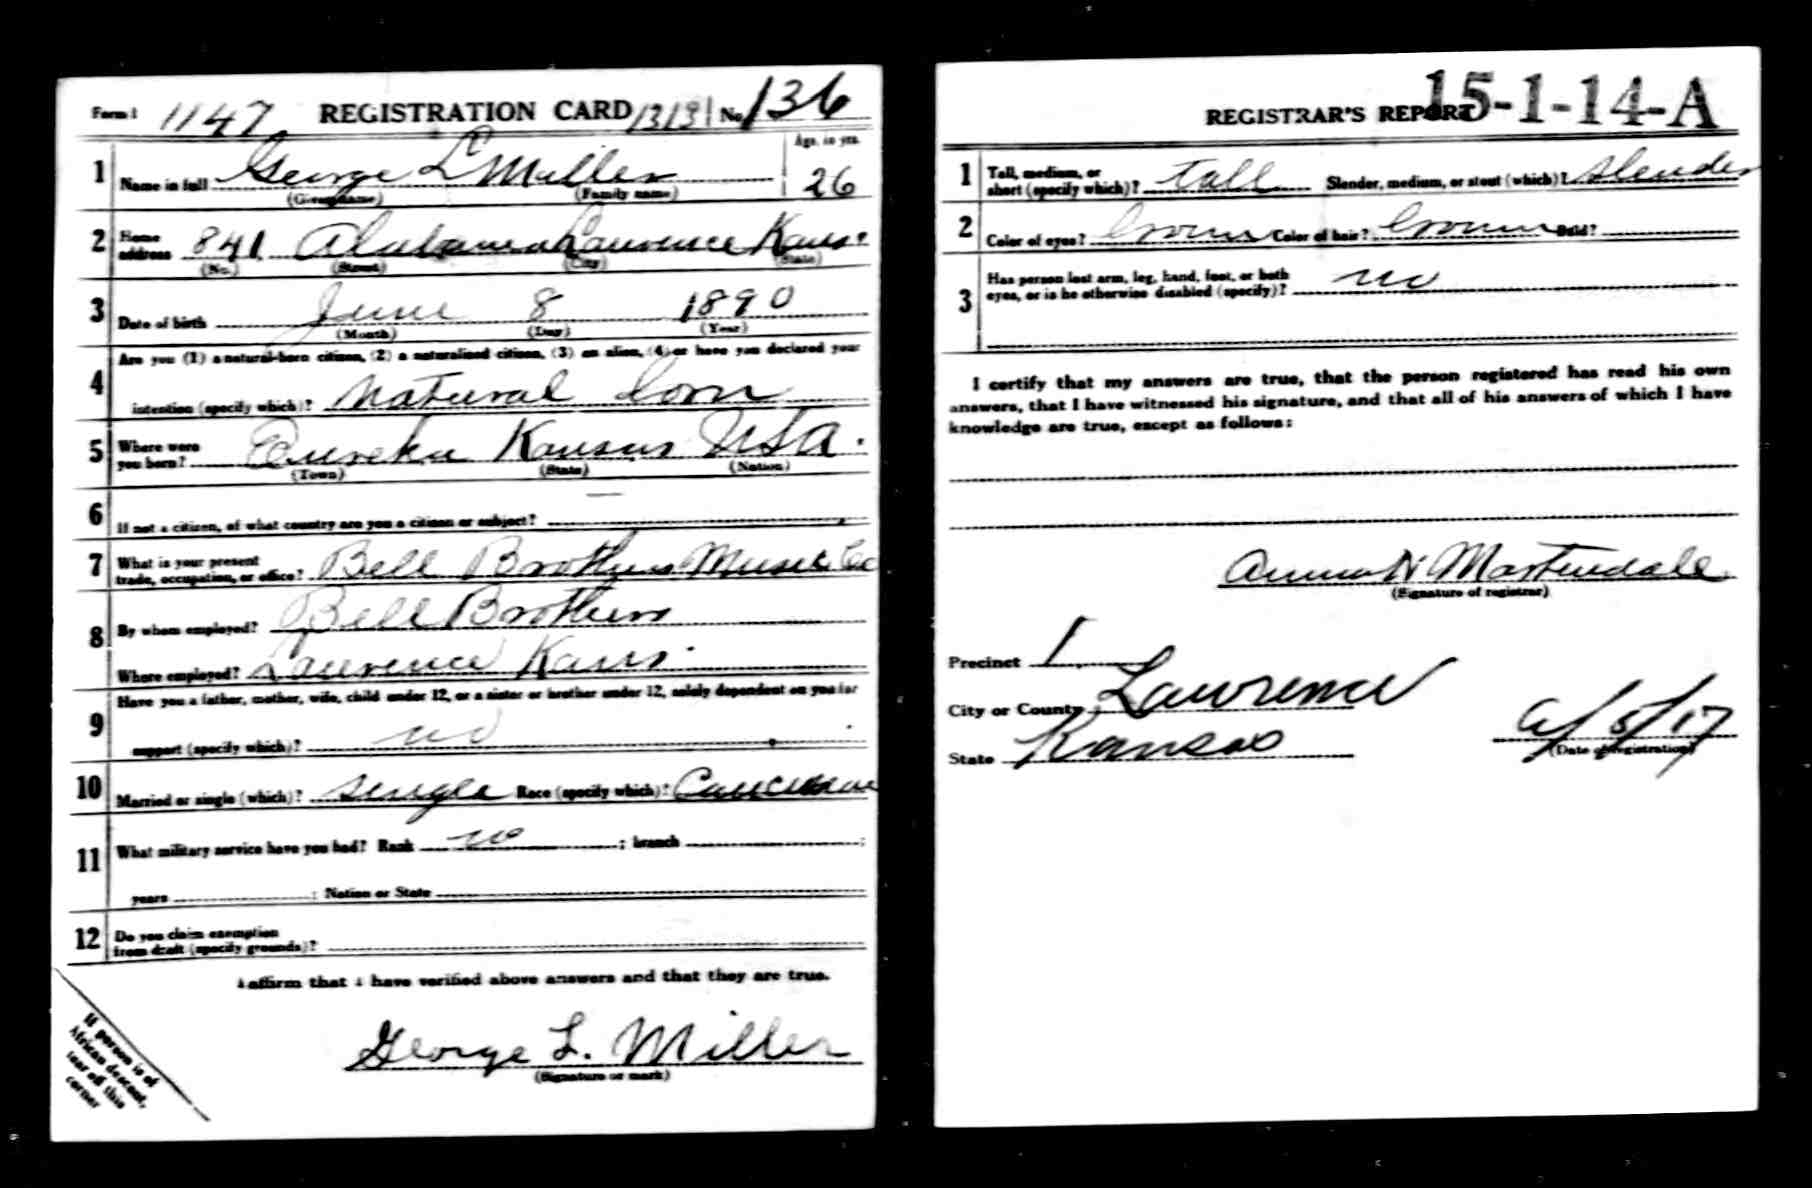 Form 1 1147 REGISTRATION CARD 13131 No. 136
1 Name in full George L Miller Age, in yrs. 26
(Given name) (Family name)
2 Home address 841 Alabama Lawrence Kans.
(No.) (Street) (City) (State)
3 Date of birth June 8 1890
(Month) (Day) (Year)
Are you (1) a natural-born citizen, (2) a naturalized citizen, (3) an alien, (4) or have you declared your
4 intention (specify which)? Natural born
5 Where were you born? Eureka Kansas USA.
(Town) (State) (Nation)
6 If not a citizen, of what country are you a citizen or subject? —
7 What is your present trade, occupation, or office? Bell Brothers Music Co
8 By whom employed? Bell Brothers
Where employed? Lawrence Kans.
Have you a father, mother, wife, child under 12, or a sister or brother under 12, solely dependent on you for
9 support (specify which)? no
10 Married or single (which)? single Race (specify which)? Caucasian
11 What military service have you had? Rank no ; branch ;
years ; Nation or State
12 Do you claim exemption from draft (specify grounds)?
I affirm that I have verified above answers and that they are true.
George L. Miller
(Signature or mark)
If person is of
African descent,
tear off this
corner
15-1-14-A
REGISTRAR'S REPORT
1 Tall, medium, or short (specify which)? tall Slender, medium, or stout (which)? slender
2 Color of eyes? brown Color of hair? brown Bald?
3 Has person lost arm, leg, hand, foot, or both eyes, or is he otherwise disabled (specify)? no
I certify that my answers are true, that the person registered has read his own
answers, that I have witnessed his signature, and that all of his answers of which I have
knowledge are true, except as follows:
Anna N Martindale
(Signature of registrar)
Precinct 1
City or County Lawrence
State Kansas 6/5/17
(Date of registration)